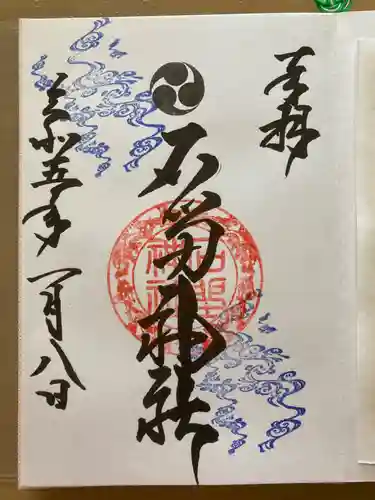 奉拝
石神社
令和五年
一月八日